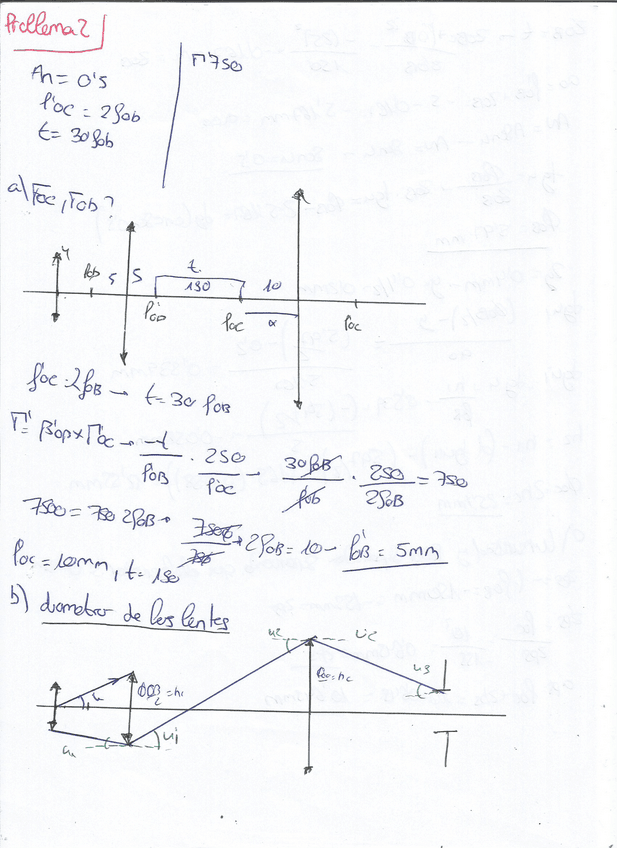 Problema 2
An = 0'5
f'oc = 2fob
t = 30fob
Γ 750
a) Foc, Fob?
t
fob 5 5 130 10
f'OB foc α f'oc
f'oc = 2fOB → t = 30 fOB
Γ = β'OB × Γ'OC → -t/f'OB · 250/f'OC → 30fOB/fOB · 250/2fOB = 750
7500 = 750 2fOB → 7500/750 → 2fOB = 10 → f'OB = 5mm
foc = 10mm, t = 150
b) diametro de las lentes
u2 u'2
h1 h2 u3
u1 u'1